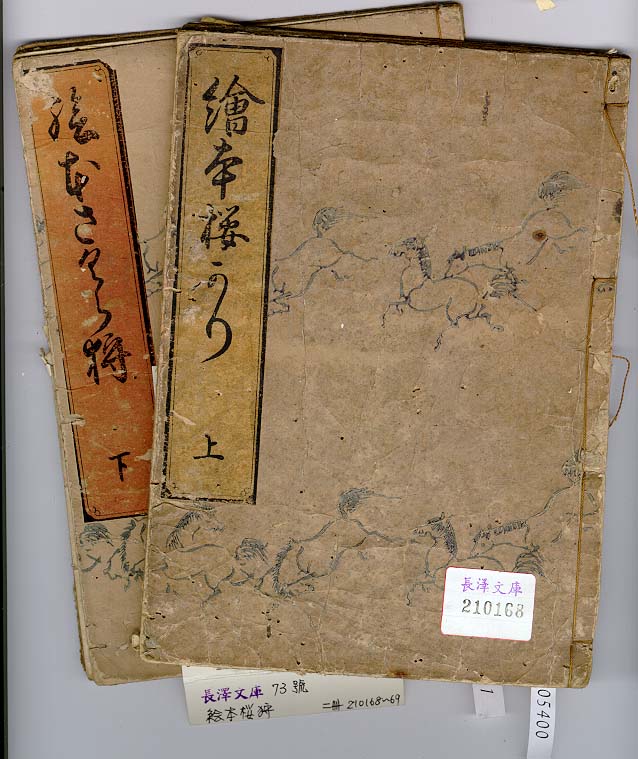 繪本桜かり
上
絵本さくら狩
下
長澤文庫
210168
長澤文庫 73號
絵本桜狩
二冊 210168~69
1
05400